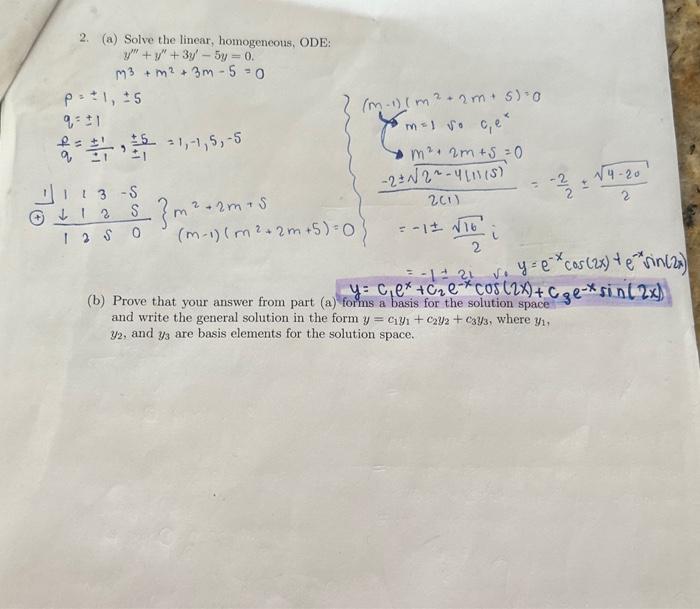 2. (a) Solve the linear, homogeneous, ODE:
y''' + y'' + 3y' − 5y = 0.
m³ + m² + 3m - 5 = 0
p = ±1, ±5
q = ±1
p/q = ±1/±1, ±5/±1 = 1, -1, 5, -5
1| 1 1 3 -5
⊕ ↓ 1 2 5
1 2 5 0
} m² + 2m + 5
(m-1)(m² + 2m + 5) = 0
(m-1)(m² + 2m + 5) = 0
m = 1 so c₁eˣ
m² + 2m + 5 = 0
-2 ± √2² - 4(1)(5) / 2(1) = -2/2 ± √4-20 / 2
= -1 ± √16/2 i
= -1 ± 2i so y = e⁻ˣcos(2x) + e⁻ˣsin(2x)
y = c₁eˣ + c₂e⁻ˣcos(2x) + c₃e⁻ˣsin(2x)
(b) Prove that your answer from part (a) forms a basis for the solution space
and write the general solution in the form y = c₁y₁ + c₂y₂ + c₃y₃, where y₁,
y₂, and y₃ are basis elements for the solution space.